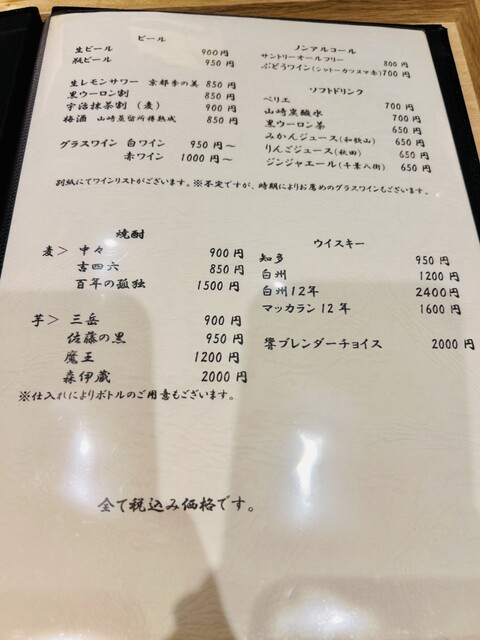 ビール
生ビール 900円
瓶ビール 950円
生レモンサワー 京都季の美 850円
黒ウーロン割 850円
宇治抹茶割(麦) 900円
梅酒 山崎蒸留所樽熟成 850円
グラスワイン 白ワイン 950円~
赤ワイン 1000円~
ノンアルコール
サントリーオールフリー 800円
ぶどうワイン(シャトーカツヌマ赤)700円
ソフトドリンク
ペリエ 700円
山崎炭酸水 700円
黒ウーロン茶 650円
みかんジュース(和歌山) 650円
りんごジュース(秋田) 650円
ジンジャエール(千葉八街) 650円
別紙にてワインリストがございます。※不定ですが、時期によりお薦めのグラスワインもございます。
焼酎
麦> 中々 900円
吉四六 850円
百年の孤独 1500円
芋> 三岳 900円
佐藤の黒 950円
魔王 1200円
森伊蔵 2000円
※仕入れによりボトルのご用意もございます。
ウイスキー
知多 950円
白州 1200円
白州12年 2400円
マッカラン12年 1600円
響ブレンダーチョイス 2000円
全て税込み価格です。